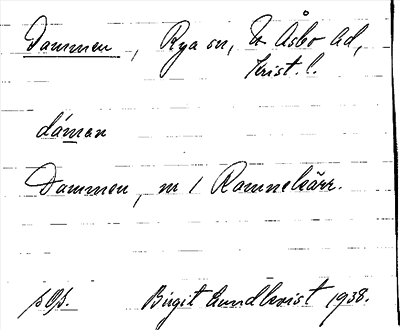 Dammen, Rya sn, N Åsbo hd,
Krist. l.
dáman
Dammen, nr 1 Ramnekärr.
pOp. Birgit Lundkvist 1938.